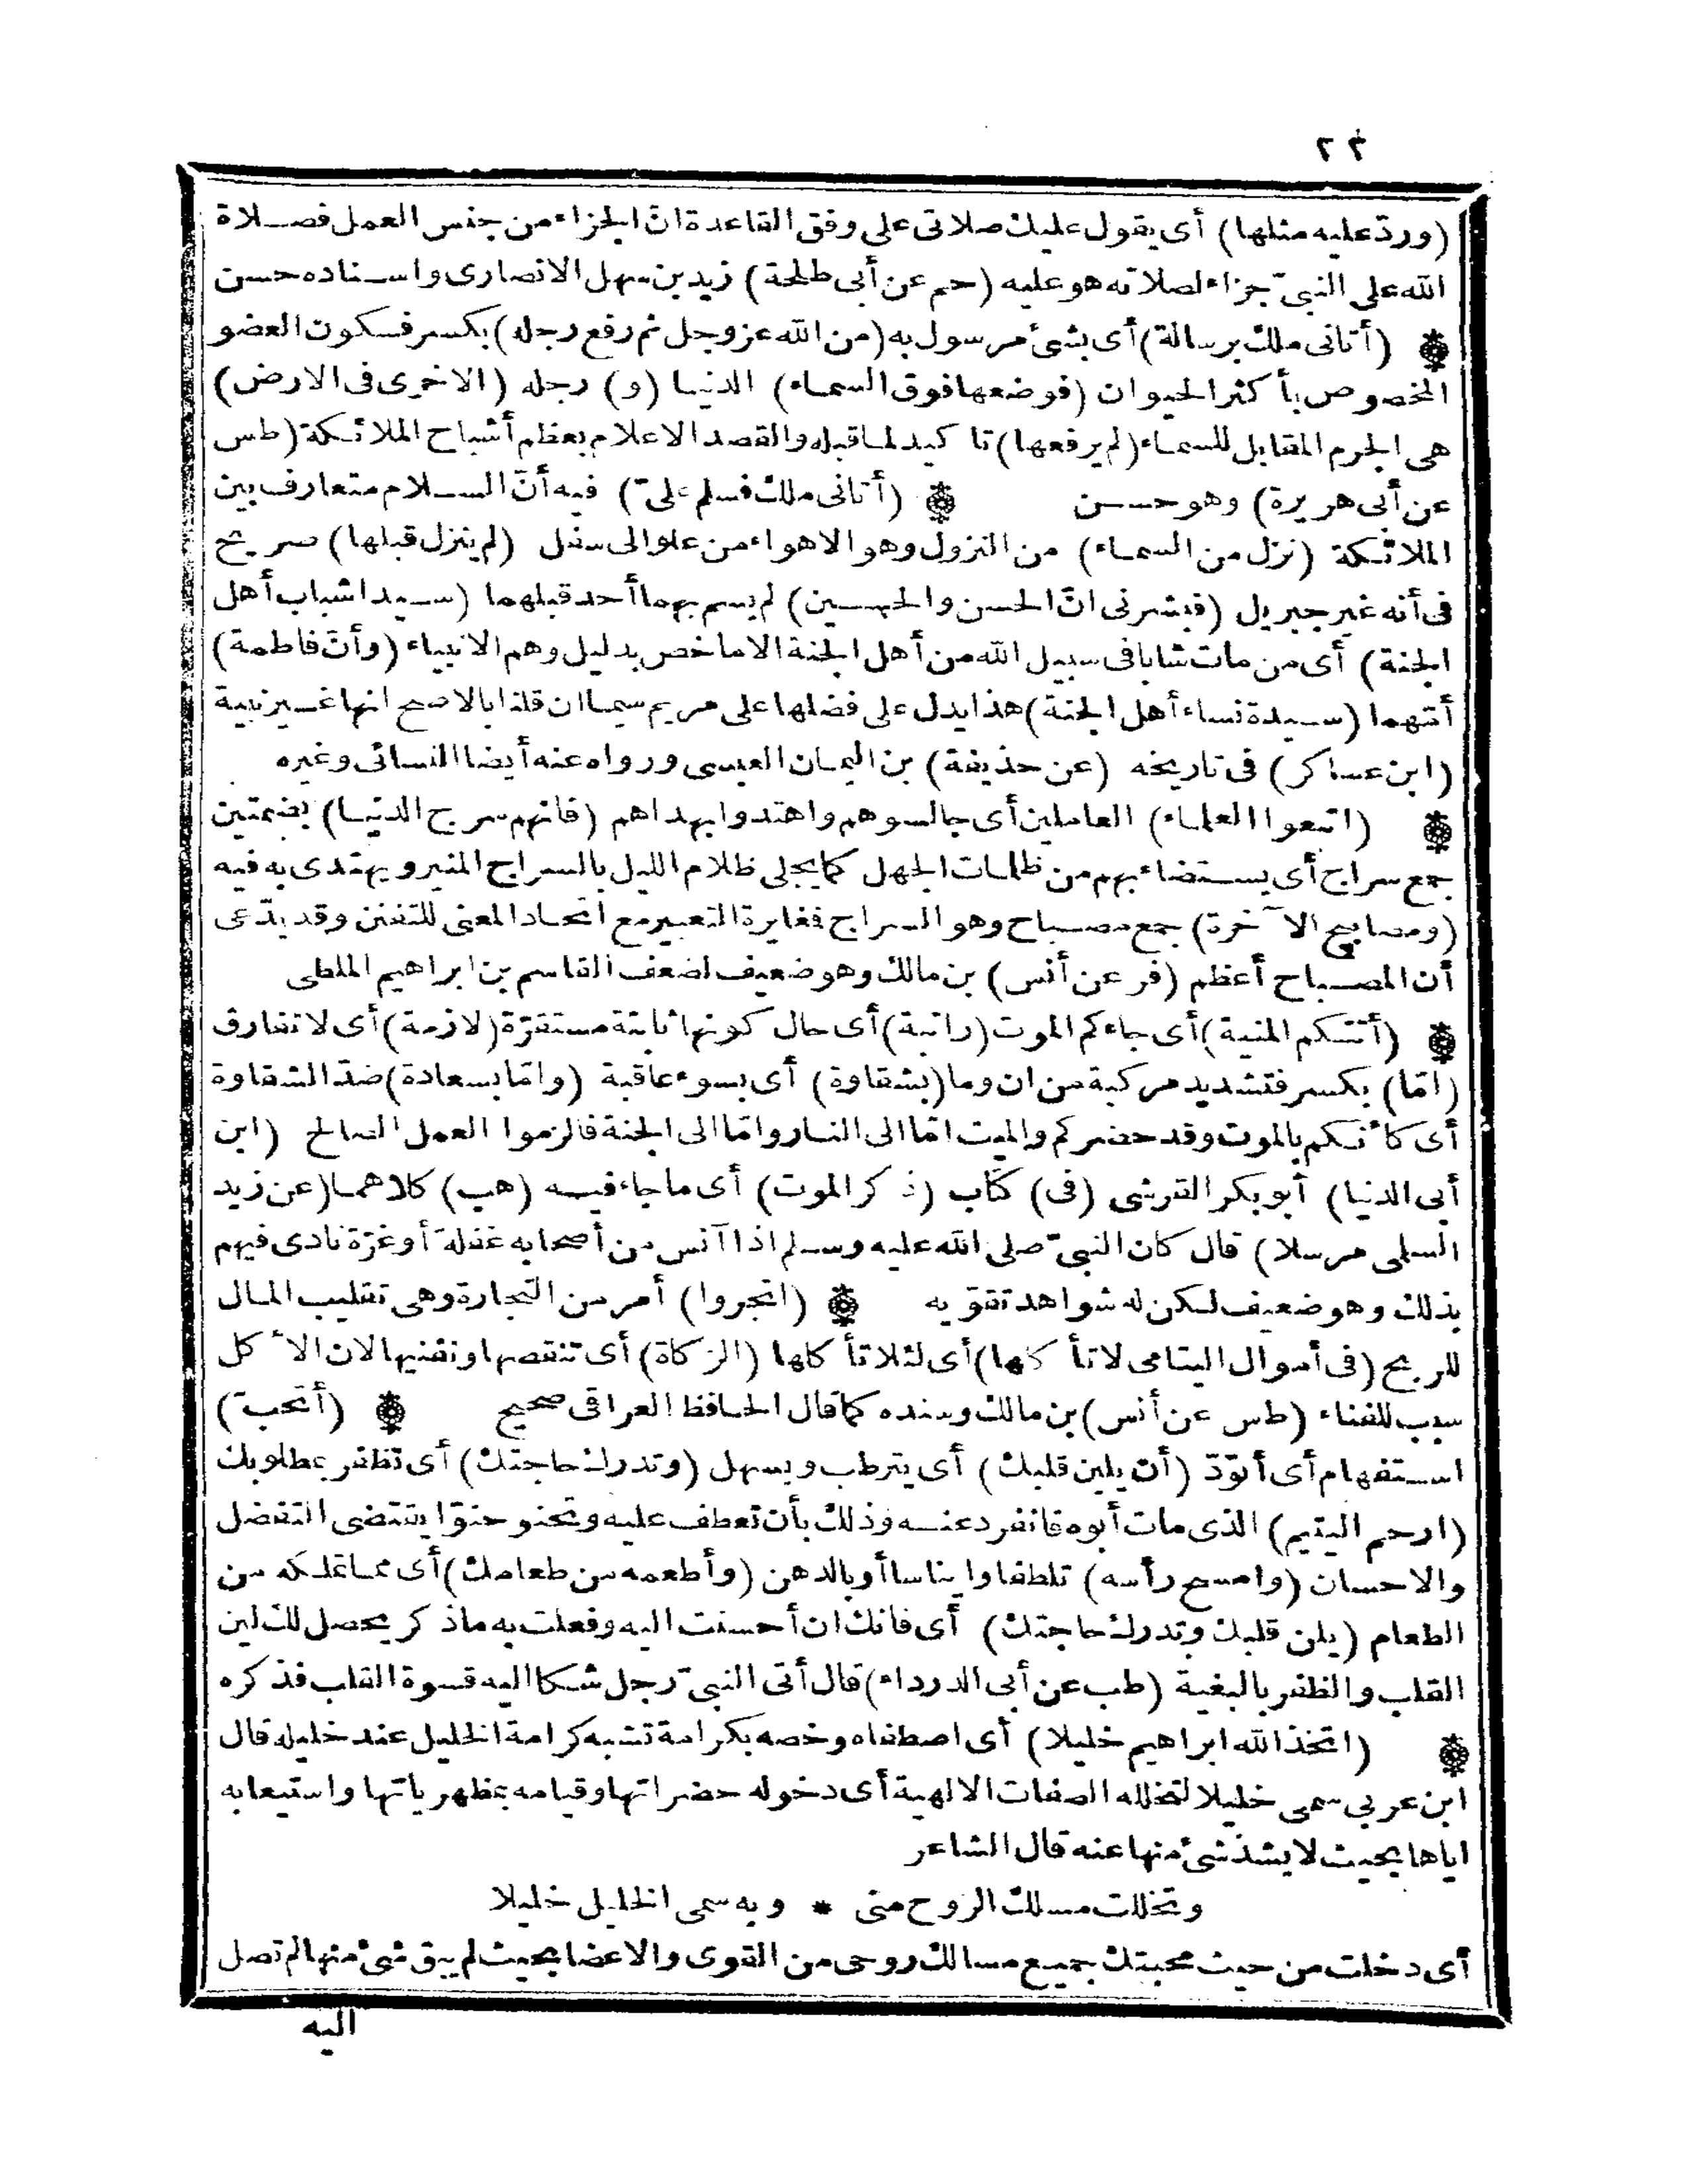 ٢٣
(وردّ عليه مثلها) أى يقول عليك صلاتى على وفق القاعدة انّ الجزاء من جنس العمل فصلاة
الله على النبىّ جزاء لصلاته هو عليه (حم عن أبى طلحة) زيد بن سهل الانصارى واسناده حسن
(أتانى ملك برسالة) أى بشئ مرسول به (من الله عز وجل ثم رفع رجله) بكسر فسكون العضو
المخصوص بأكثر الحيوان (فوضعها فوق السماء) الدنيا (و) رجله (الاخرى فى الارض)
هى الجرم المقابل للسماء (لم يرفعها) تاكيد لما قبله والقصد الاعلام بعظم أشباح الملائكة (طس
عن أبى هريرة) وهو حسن (أتانى ملك فسلم علىّ) فيه أنّ السلام متعارف بين
الملائكة (نزل من السماء) من النزول وهو الاهواء من علو الى سفل (لم ينزل قبلها) صريح
فى أنه غير جبريل (فبشرنى انّ الحسن والحسين) لم يسم بهما أحد قبلهما (سيدا شباب أهل
الجنة) أى من مات شابا فى سبيل الله من أهل الجنة الا ما خص بدليل وهم الانبياء (وأنّ فاطمة)
أمّهما (سيدة نساء أهل الجنة) هذا يدل على فضلها على مريم سيما ان قلنا بالاصح انها غير نبية
(ابن عساكر) فى تاريخه (عن حذيفة) بن اليمان العبسى ورواه عنه أيضا النسائى وغيره
(اتبعوا العلماء) العاملين أى جالسوهم واهتدوا بهداهم (فانهم سرج الدنيا) بضمتين
جمع سراج أى يستضاء بهم من ظلمات الجهل كما يجلى ظلام الليل بالسراج المنير ويهتدى به فيه
(ومصابيح الآخرة) جمع مصباح وهو السراج فمغايرة التعبير مع اتحاد المعنى للتفنن وقد يدّعى
أن المصباح أعظم (فر عن أنس) بن مالك وهو ضعيف لضعف القاسم بن ابراهيم الملطى
(أتتكم المنية) أى جاءكم الموت (راتبة) أى حال كونها ثابتة مستقرّة (لازمة) أى لا تفارق
(امّا) بكسر فتشديد مركبة من ان وما (بشقاوة) أى بسوء عاقبة (وامّا بسعادة) ضدّ الشقاوة
أى كأنكم بالموت وقد حضركم والميت امّا الى النار وامّا الى الجنة فالزموا العمل الصالح (ابن
أبى الدنيا) أبو بكر القرشى (فى) كتاب (ذكر الموت) أى ما جاء فيه (هب) كلاهما (عن زيد
السلمى مرسلا) قال كان النبىّ صلى الله عليه وسلم اذا آنس من أصحابه غفلة أو غرّة نادى فيهم
بذلك وهو ضعيف لكن له شواهد تقوّيه (اتجروا) أمر من التجارة وهى تقليب المال
للربح (فى أموال اليتامى لا تأكلها) أى لئلا تأكلها (الزكاة) أى تنقصها وتفنيها لان الأكل
سبب للفناء (طس عن أنس) بن مالك وسنده كما قال الحافظ العراقى صحيح (أتحبّ)
استفهام أى أتودّ (أن يلين قلبك) أى يترطب ويسهل (وتدرك حاجتك) أى تظفر بمطلوبك
(ارحم اليتيم) الذى مات أبوه فانفرد عنه وذلك بأن تعطف عليه وتحنو حنوّا يقتضى التفضل
والاحسان (وامسح رأسه) تلطفا وايناسا أو بالدهن (وأطعمه من طعامك) أى مما تملكه من
الطعام (يلن قلبك وتدرك حاجتك) أى فانك ان أحسنت اليه وفعلت به ما ذكر يحصل لك لين
القلب والظفر بالبغية (طب عن أبى الدرداء) قال أتى النبىّ رجل شكا اليه قسوة القلب فذكره
(اتخذ الله ابراهيم خليلا) أى اصطفاه وخصه بكرامة تشبه كرامة الخليل عند خليله قال
ابن عربى سمى خليلا لتخلله الصفات الالهية أى دخوله حضراتها وقيامه بمظهرياتها واستيعابه
اياها بحيث لا يشذ شئ منها عنه قال الشاعر
وتخللت مسلك الروح منى * وبه سمى الخليل خليلا
أى دخلت من حيث محبتك جميع مسالك روحى من القوى والاعضا بحيث لم يبق شئ منها لم تصل
اليه